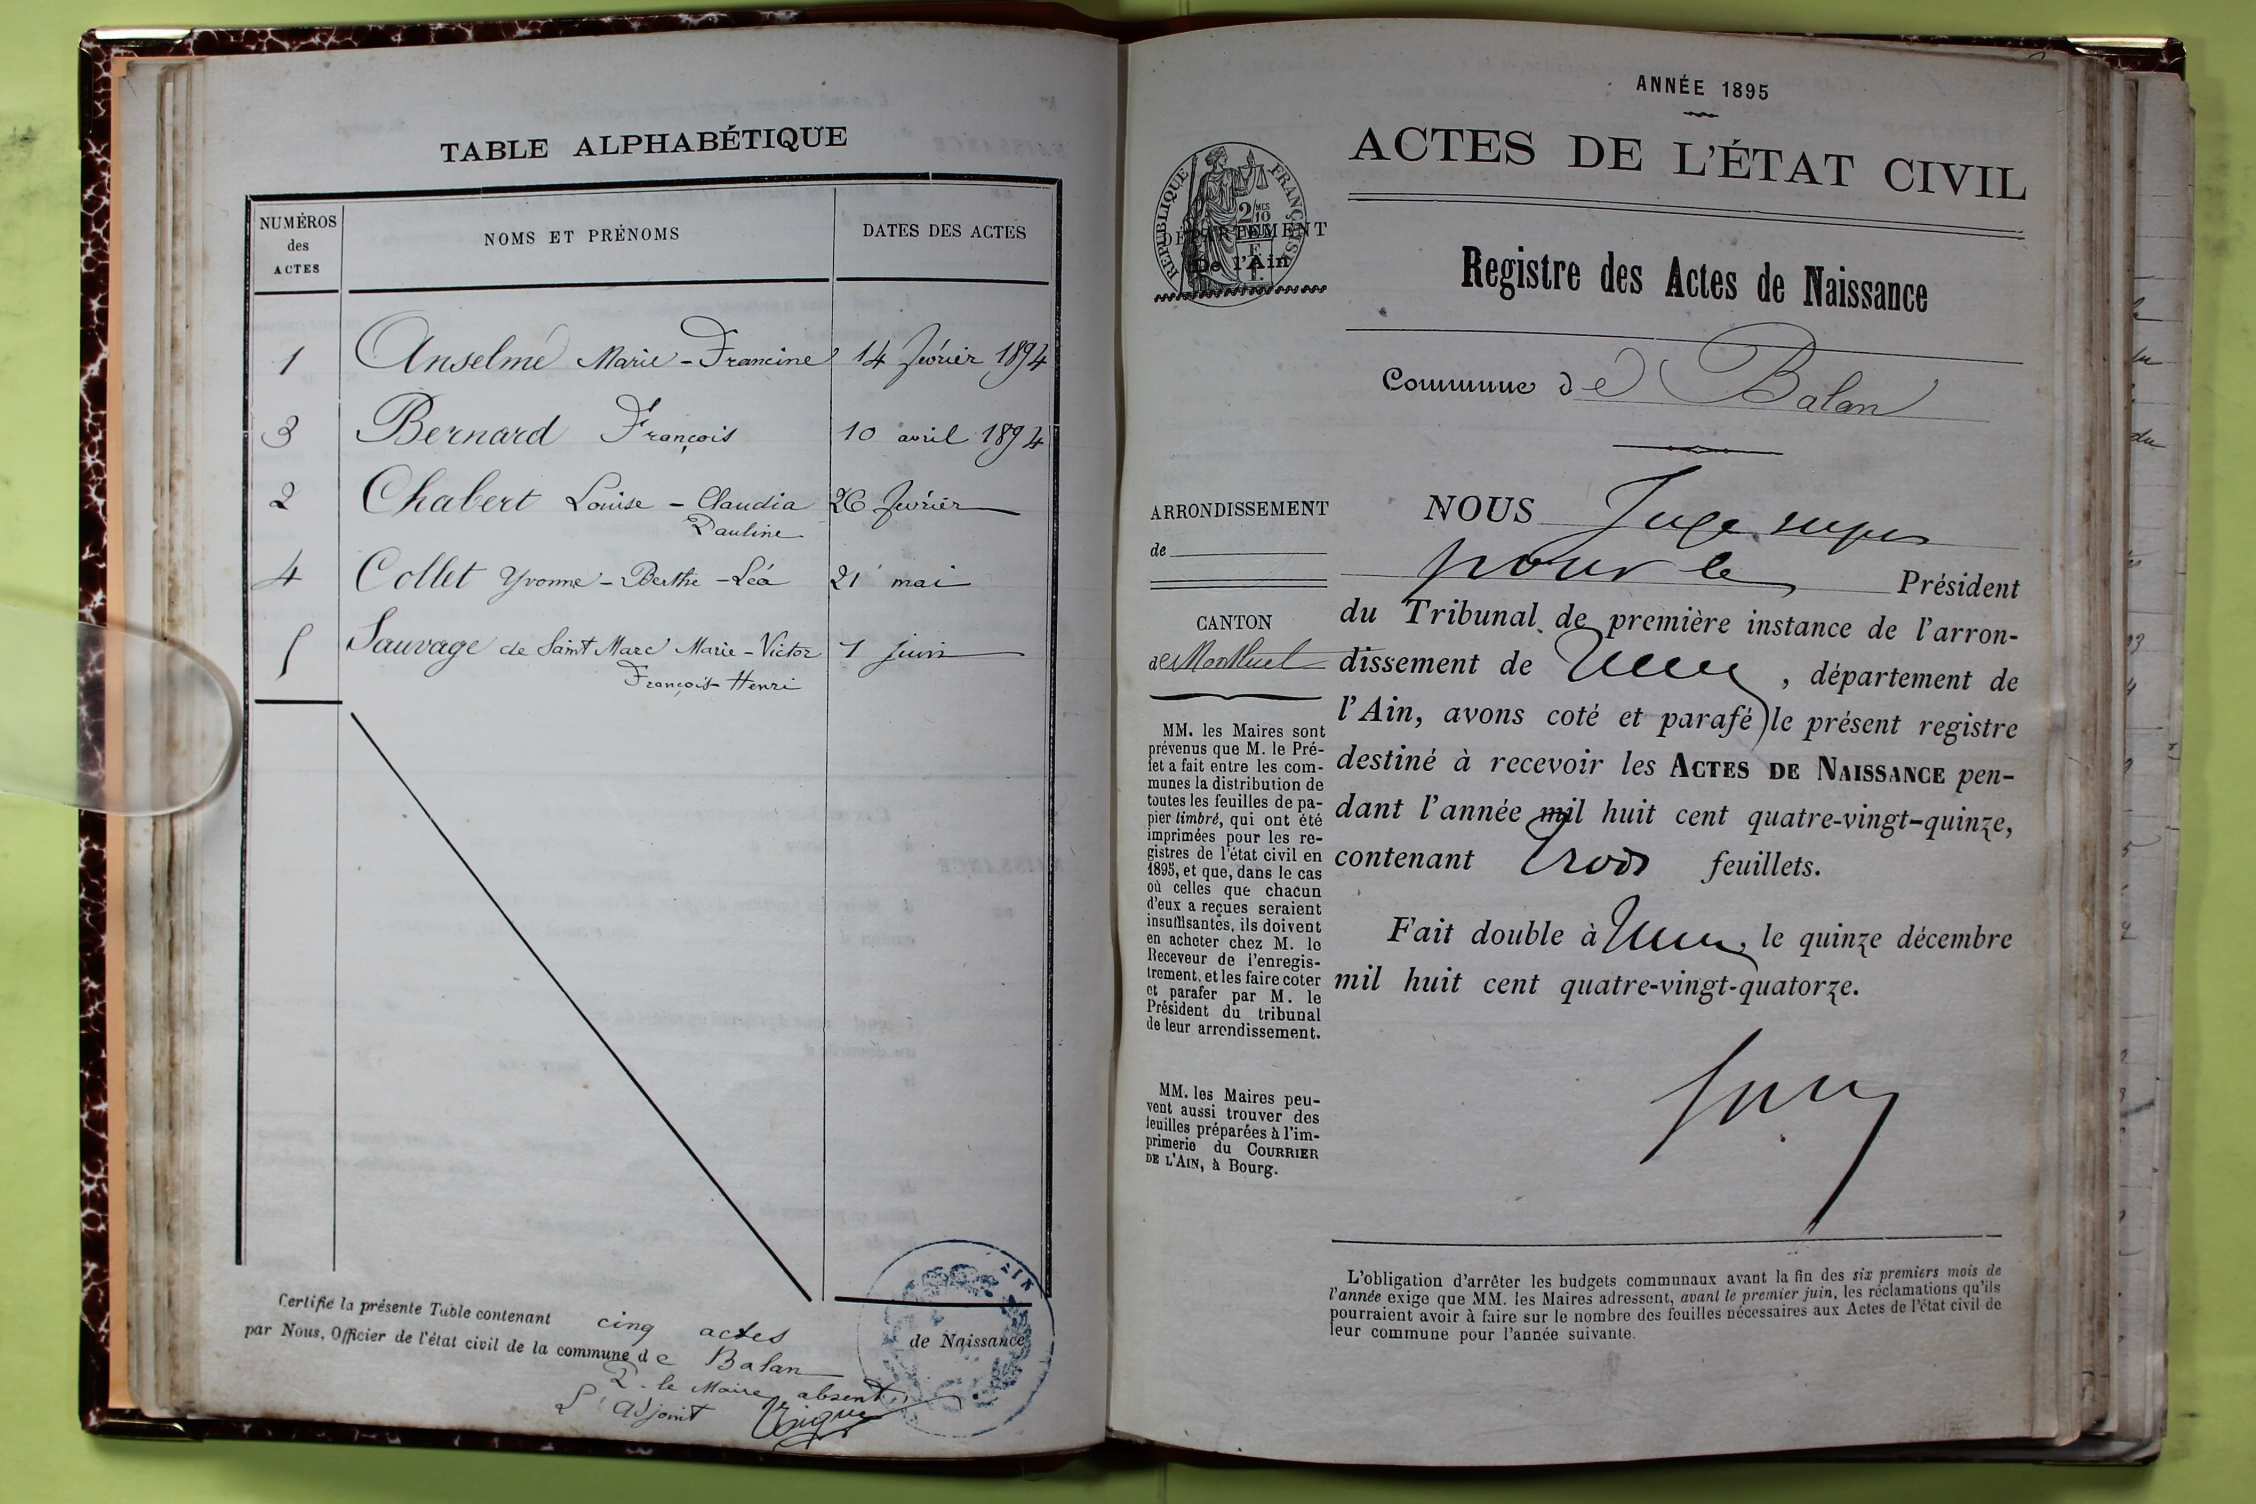 TABLE ALPHABÉTIQUE
NUMÉROS des ACTES | NOMS ET PRÉNOMS | DATES DES ACTES
1 Anselme Marie-Francine 14 février 1894
3 Bernard François 10 avril 1894
2 Chabert Louise-Claudia 26 février
Pauline
4 Collet Yvonne-Berthe-Léa 21 mai
5 Sauvage de Saint Marc Marie-Victor 1 juin
François-Henri
Certifié la présente Table contenant cinq actes de Naissance
par Nous, Officier de l'état civil de la commune de Balan
P. le Maire absent,
L'adjoint
ANNÉE 1895
ACTES DE L'ÉTAT CIVIL
RÉPUBLIQUE FRANÇAISE
DÉPARTEMENT
De l'Ain
Registre des Actes de Naissance
Commune de Balan
ARRONDISSEMENT
de
CANTON
de Montluel
MM. les Maires sont
prévenus que M. le Pré-
fet a fait entre les com-
munes la distribution de
toutes les feuilles de pa-
pier timbré, qui ont été
imprimées pour les re-
gistres de l'état civil en
1895, et que, dans le cas
où celles que chacun
d'eux a reçues seraient
insuffisantes, ils doivent
en acheter chez M. le
Receveur de l'enregis-
trement, et les faire coter
et parafer par M. le
Président du tribunal
de leur arrondissement.
MM. les Maires peu-
vent aussi trouver des
feuilles préparées à l'im-
primerie du COURRIER
DE L'AIN, à Bourg.
NOUS Juge
pour le Président
du Tribunal de première instance de l'arron-
dissement de , département de
l'Ain, avons coté et parafé le présent registre
destiné à recevoir les ACTES DE NAISSANCE pen-
dant l'année mil huit cent quatre-vingt-quinze,
contenant trois feuillets.
Fait double à , le quinze décembre
mil huit cent quatre-vingt-quatorze.
L'obligation d'arrêter les budgets communaux avant la fin des six premiers mois de
l'année exige que MM. les Maires adressent, avant le premier juin, les réclamations qu'ils
pourraient avoir à faire sur le nombre des feuilles nécessaires aux Actes de l'état civil de
leur commune pour l'année suivante.